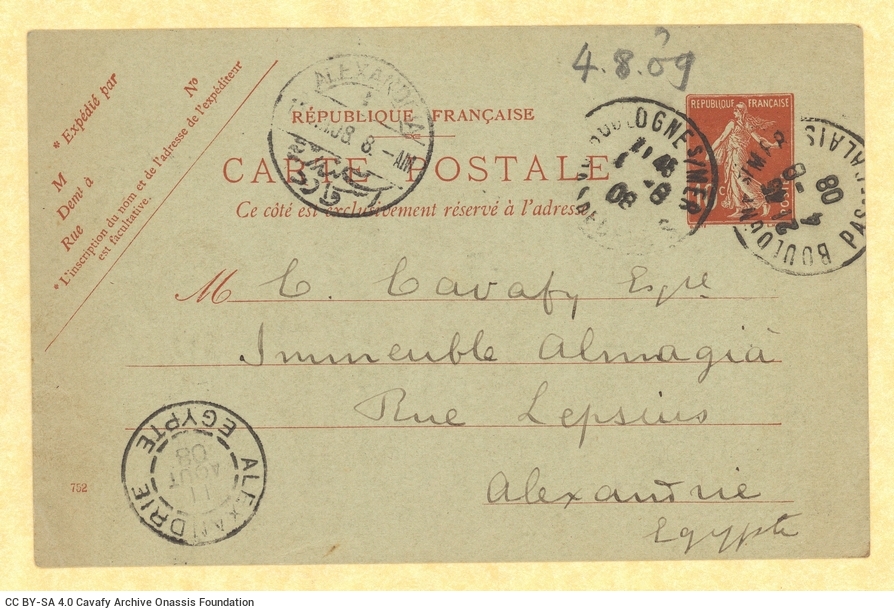 4.8.09
?
* Expédié par
Nº
M
Demi à
Rue
* L'inscription du nom et de l'adresse de l'expéditeur
est facultative.
ALEXANDRIA
08. 8.-AM
RÉPUBLIQUE FRANÇAISE
CARTE POSTALE
Ce côté est exclusivement réservé à l'adresse
REPUBLIQUE FRANÇAISE
10 C
POSTES
BOULOGNE S/MER
11 45
4 -8
08
BOULOGNE S/MER
PAS DE CALAIS
4 -8
08
M C. Cavafy Esqre
Immeuble Almagià
Rue Lepsius
Alexandrie
Egypte
ALEXANDRIE
EGYPTE
11
AOUT
08
752
CC BY-SA 4.0 Cavafy Archive Onassis Foundation